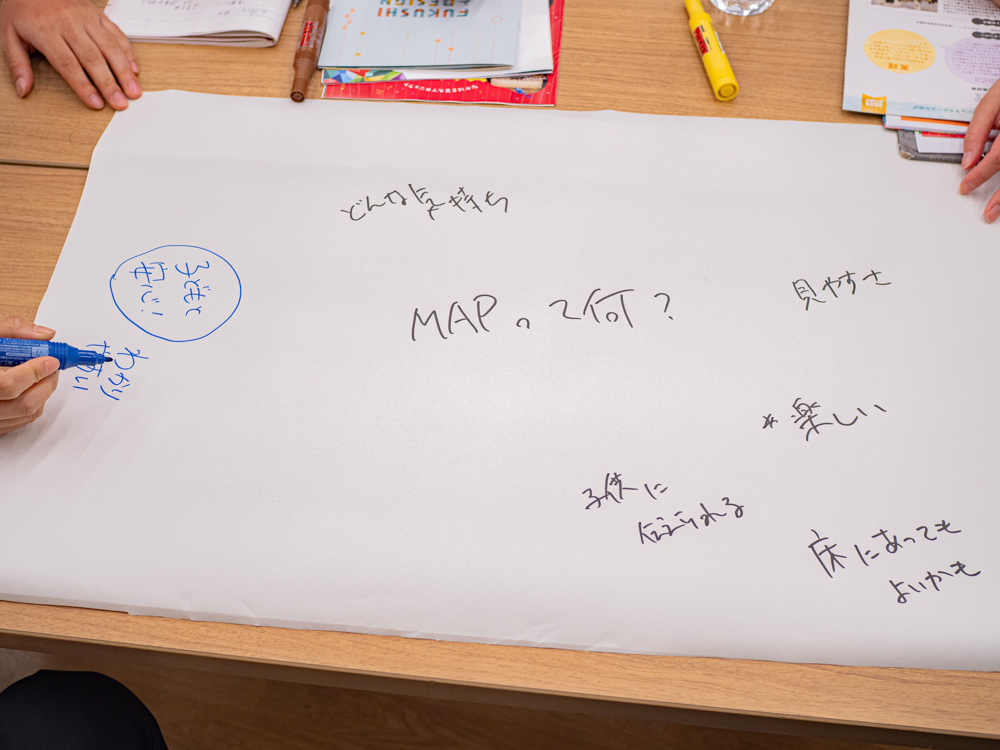 FUKUSHI
× DESIGN
実践
どんな気持ち
子どもも
安心!
MAPって何?
見やすさ
わかり
やすい
* 楽しい
子供に
伝えられる
床にあっても
よいかも